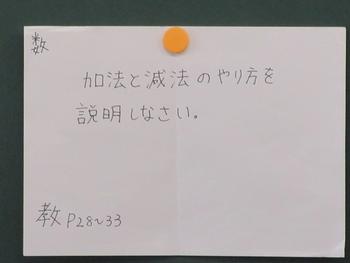 数
加法と減法のやり方を
説明しなさい。
教 P28~33